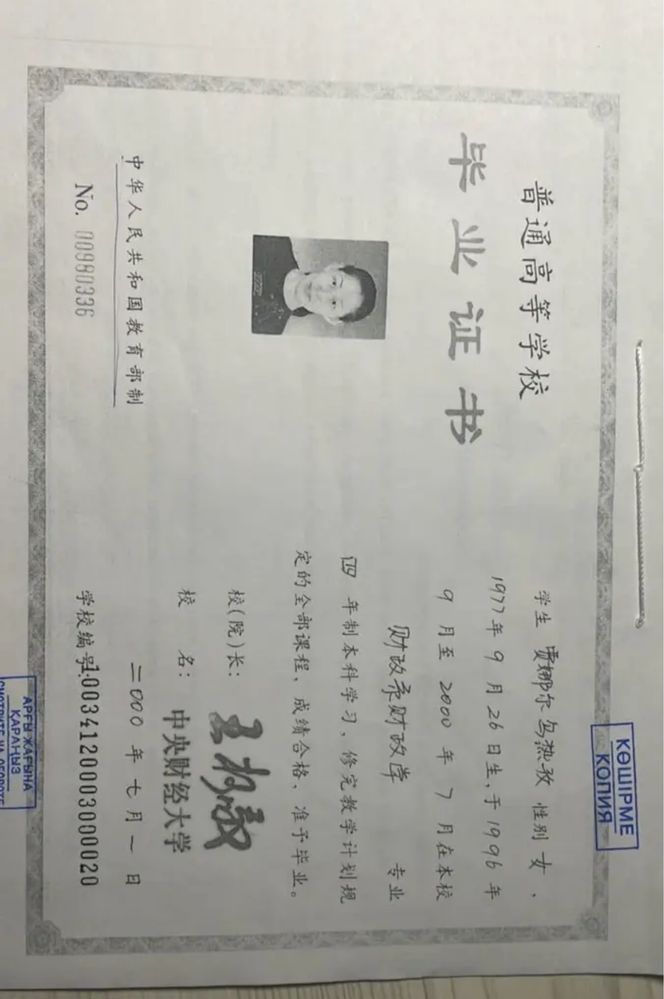 普通高等学校
毕业证书
中华人民共和国教育部制
No. 00980336
学生 贾娜尔·乌热孜 性别 女、
1977年 9 月 26 日生、于 1996 年
9 月至 2000 年 7 月在本校
财政系财政学 专业
四 年制本科学习、修完教学计划规
定的全部课程、成绩合格、准予毕业。
校(院)长:
校 名: 中央财经大学
二000 年 七 月 一 日
学校编号:10034120003000020
КӨШІРМЕ
КОПИЯ
АРҒЫ ЖАҒЫНА
ҚАРАҢЫЗ
СМОТРИТЕ НА ОБОРОТЕ